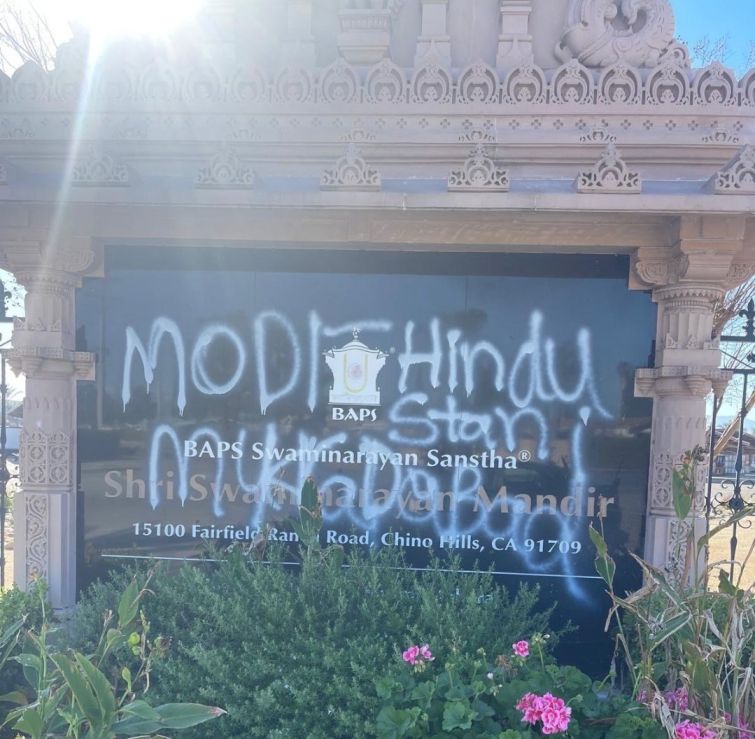 MODI Hindu
Stan
BAPS
BAPS Swaminarayan Sanstha®
MURDaBad
Shri Swaminarayan Mandir
15100 Fairfield Ranch Road, Chino Hills, CA 91709